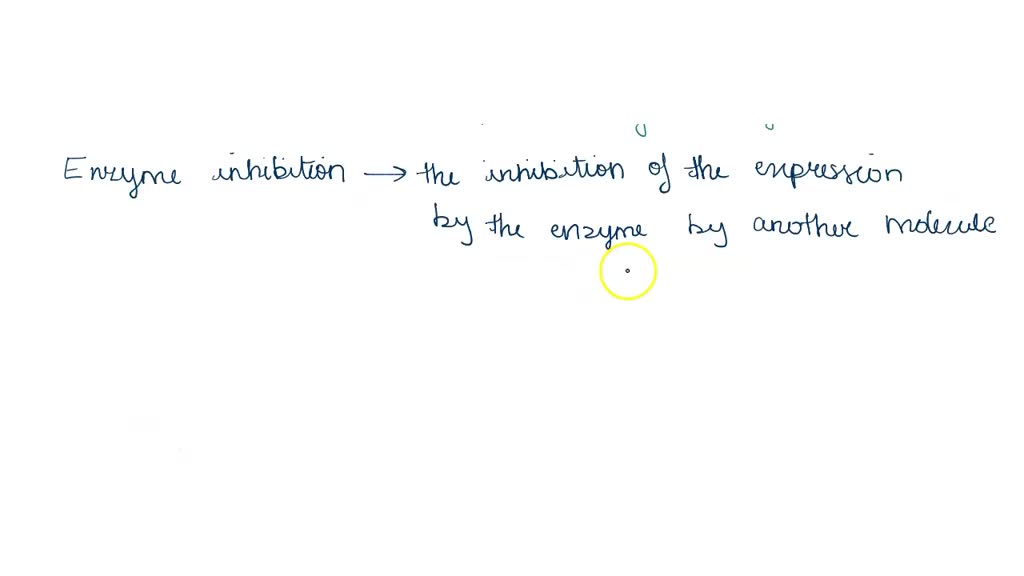 Enzyme inhibition → the inhibition of the expression
by the enzyme by another molecule